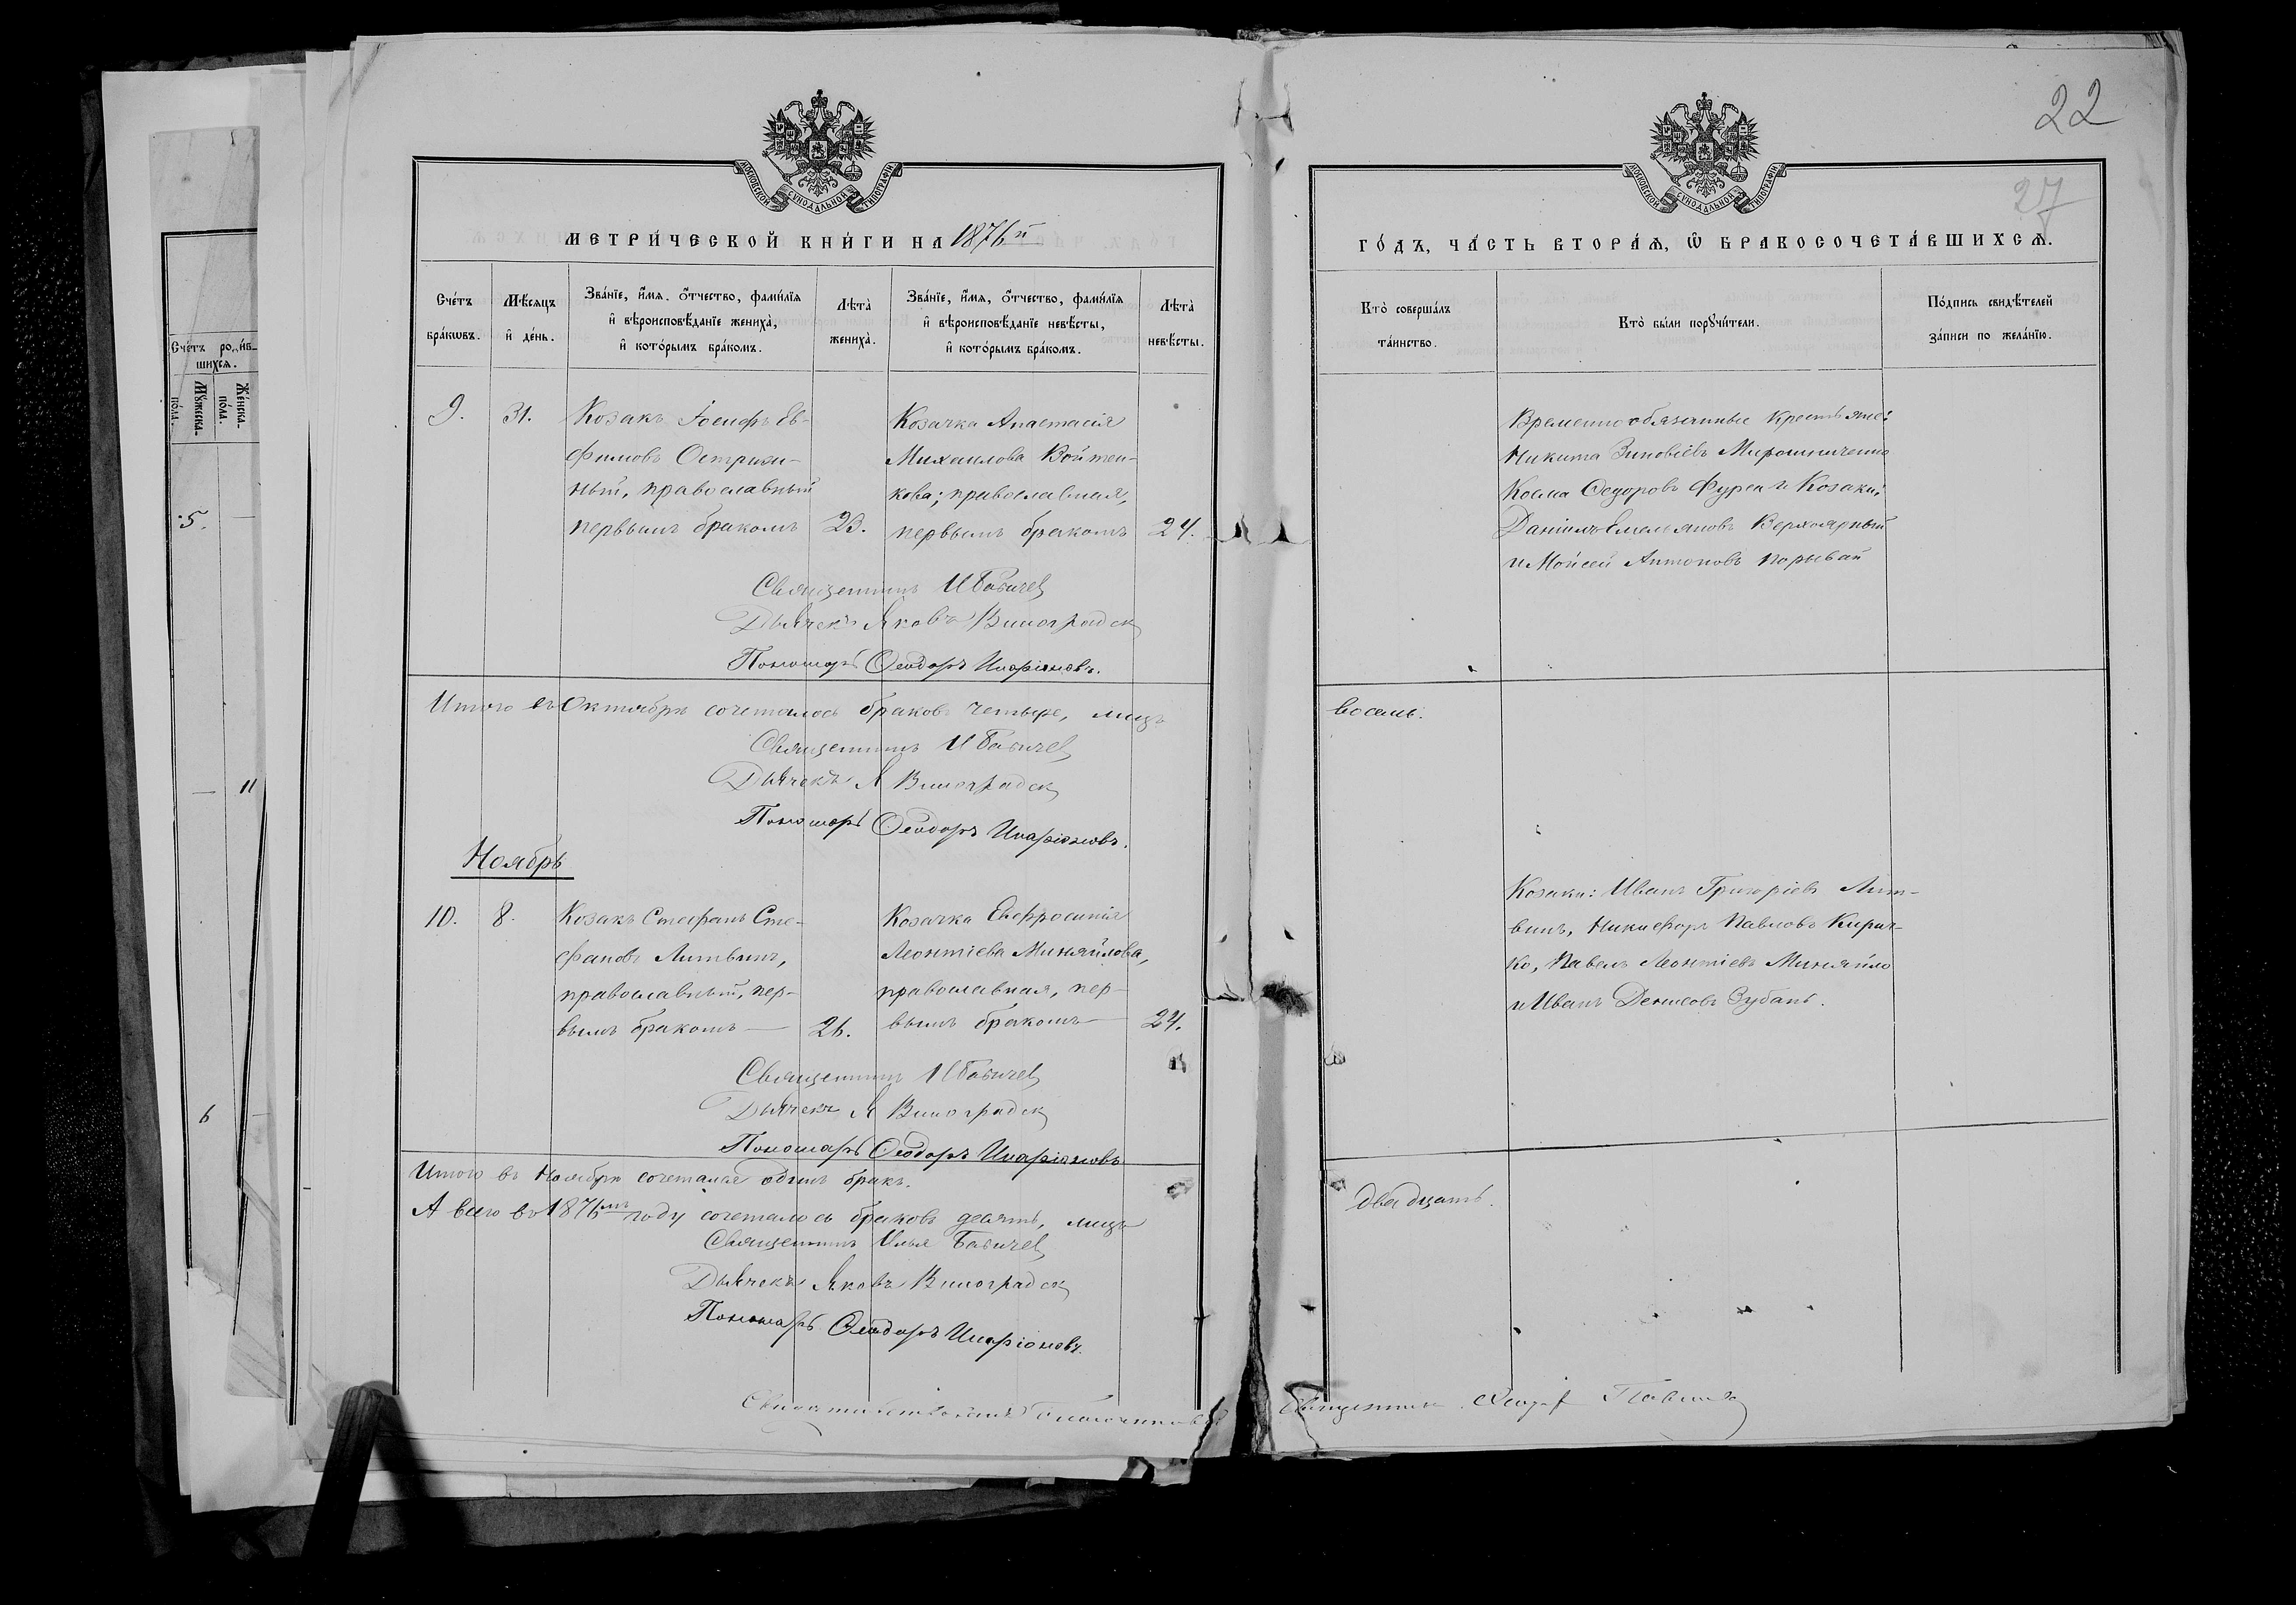 22
27
МОСКОВСКОЙ СѴНОДАЛЬНОЙ ТИПОГРАФІИ
МОСКОВСКОЙ СѴНОДАЛЬНОЙ ТИПОГРАФІИ
МЕТРИ́ЧЕСКОЙ КНИ́ГИ НА 1876й
ГО́ДЪ, ЧА́СТЬ ВТОРА́Ѧ, Ѽ БРАКОСОЧЕТА́ВШИХСѦ.
Сче́тъ бра́кѡвъ.
Мѣ́сяцъ и҆ де́нь.
Зва́нїе, и҆́мѧ, ѻ҆́тчество, фами́лїѧ
и҆ вѣроисповѣ́данїе жениха̀,
и҆ кото́рымъ бра́комъ.
Лѣта̀ жениха̀.
Зва́нїе, и҆́мѧ, ѻ҆́тчество, фами́лїѧ
и҆ вѣроисповѣ́данїе невѣ́сты,
и҆ кото́рымъ бра́комъ.
Лѣта̀ невѣ́сты.
Кто̀ соверша́лъ
та́инство.
Кто̀ бы́ли порꙋчи́тели.
По́дпись свидѣ́телей
за́писи по жела́нїю.
Сче́тъ роди́в-
шихсѧ.
Мꙋ́жеска- по́ла.
Же́нска- по́ла.
5.
11
6
9.
31.
Козакъ Іосифъ Ев-
фимовъ Остриж-
ный, православный
первымъ бракомъ
23.
Козачка Анастасія
Михаилова Войтен-
кова; православная,
первымъ бракомъ
24.
Временнообязанные крестьяне:
Никита Зиновіевъ Мирошниченко
Косма Федоровъ Фурса и Козаки:
Даніилъ Емельяновъ Верхоярный
и Мойсей Антоновъ Порывай
Священникъ И Бабичев
Дьячекъ Яковъ Виноградск
Пономарь Ѳеодоръ Иларіоновъ.
Итого въ Октябрѣ сочеталось браковъ четыре, лицъ
восемь.
Священникъ И Бабичев
Дьячекъ Я Виноградск
Пономарь Ѳеодоръ Иларіоновъ.
Ноябрь
10.
8.
Козакъ Стефанъ Сте-
фановъ Литвинъ,
православный, пер-
вымъ бракомъ
26.
Козачка Евфросинія
Леонтіева Миняйлова,
православная, пер-
вымъ бракомъ
24.
Козаки: Иванъ Григоріевъ Лит-
винъ, Никифоръ Павловъ Кирич-
ко, Павелъ Леонтіевъ Миняйло
и Иванъ Денисовъ Зубань.
Священникъ И Бабичев
Дьячекъ Я Виноградск
Пономарь Ѳеодоръ Иларіоновъ
Итого въ Ноябрѣ сочетался одинъ бракъ.
А всего въ 1876мъ году сочеталось браковъ десять, лицъ
двадцать.
Священникъ Илья Бабичев
Дьячекъ Яковъ Виноградск
Пономарь Ѳеодоръ Иларіоновъ.
Священникъ